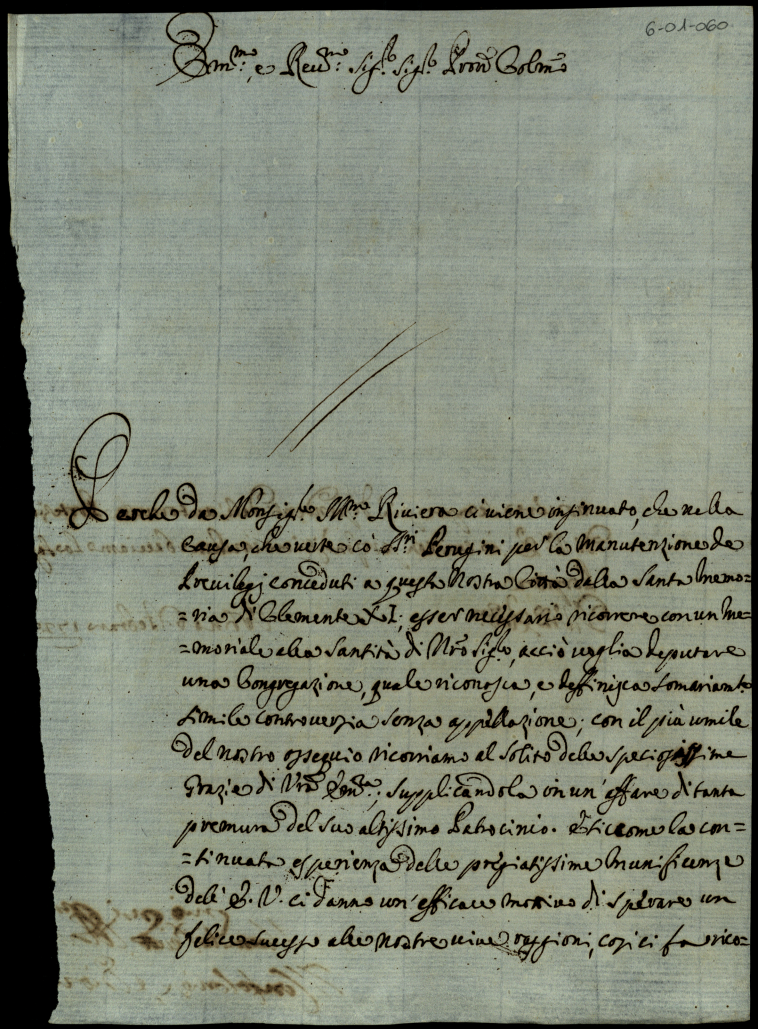 6-01-060
Em.mo, e Reu.mo Sig.r Sig.r Pron Colmo
Perche da Monsig.re Ill.mo Riviera ci viene insinuato, che nella
Causa, che verte cò SS.ri Perugini per la manutenzione de
Previlegj conceduti a questa Nostra Città dalla Santa memo=
=ria di Clemente XI, esser necessario ricorrere con un me=
=moriale alla Santità di Nrõ Sig.re, acciò voglia deputare
una Congregazione, quale riconosca, e deffinisca somariam.te
simile controversia senza appellazione; con il più umile
del nostro ossequio ricorriamo al solito delle speciosissime
Grazie di Vrã Em.za, supplicandola in un'affare di tanta
premura del suo altissimo Patrocinio. E siccome la con=
=tinuata esperienza delle pregiatissime munificenze
dell'E. V. ci danno un'efficace motivo di sperare un
felice sucesso alle nostre vive raggioni, così ci fa rico=